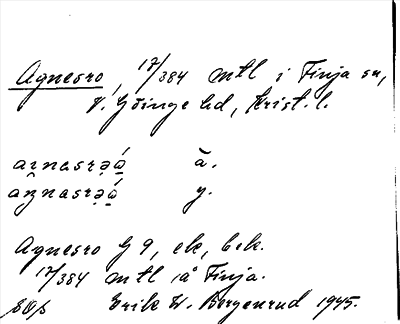 Agnesro, 17/384 mtl i Finja sn,
V. Göinge hd, Krist. l.
ä.
y.
Agnesro G 9, ek, bek.
17/384 mtl i å Finja.
Erik W. Bergenrud 1945.